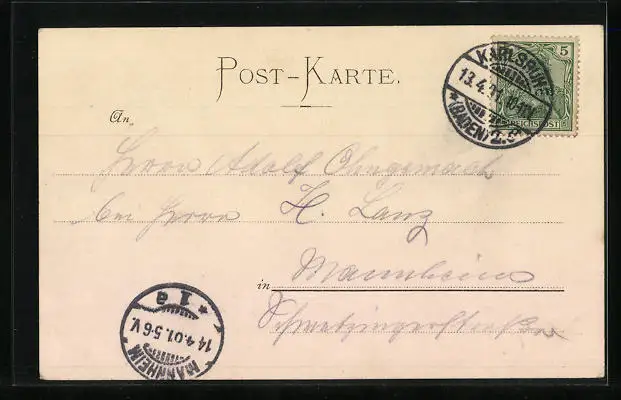 POST-KARTE.
KARLSRUHE
13.4.01
*(BADEN) 2.
5
REICHSPOST
An
Herrn Adolf
bei Herrn H. Lanz
in Mannheim
Schwetzingerstrasse
MANNHEIM
14.4.01.5-6V.
* 1a *